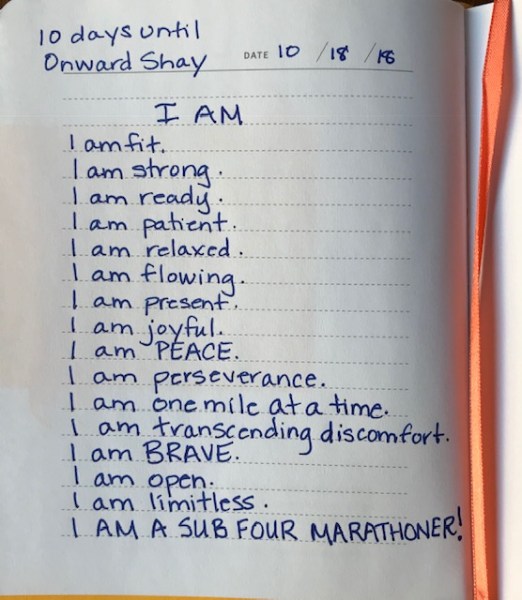 10 days until
Onward Shay DATE 10 / 18 / 18
I AM
I am fit.
I am strong.
I am ready.
I am patient.
I am relaxed.
I am flowing.
I am present.
I am joyful.
I am PEACE.
I am perseverance.
I am one mile at a time.
I am transcending discomfort.
I am BRAVE.
I am open.
I am limitless.
I AM A SUB FOUR MARATHONER!